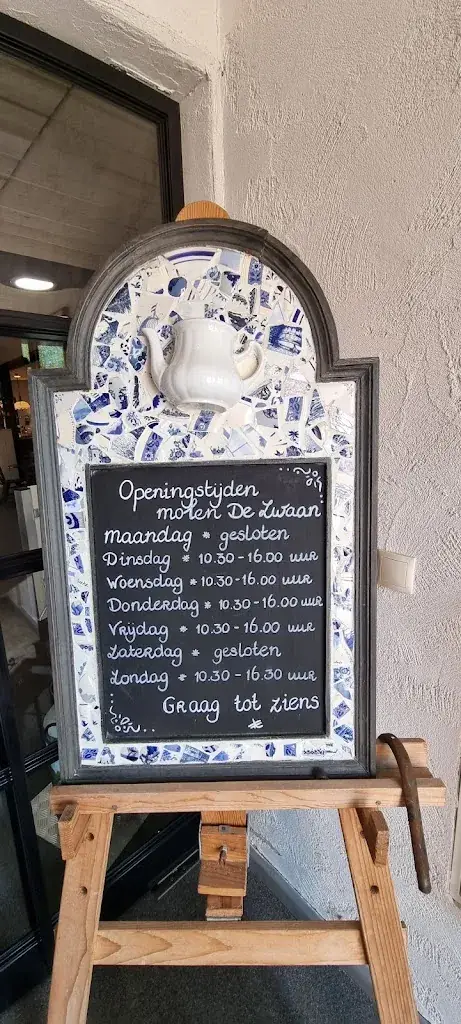 Openingstijden
molen De Zwaan
maandag * gesloten
Dinsdag * 10.30-16.00 uur
Woensdag * 10.30-16.00 uur
Donderdag * 10.30-16.00 uur
Vrijdag * 10.30-16.00 uur
Zaterdag * gesloten
Zondag * 10.30-16.30 uur
Graag tot ziens
*